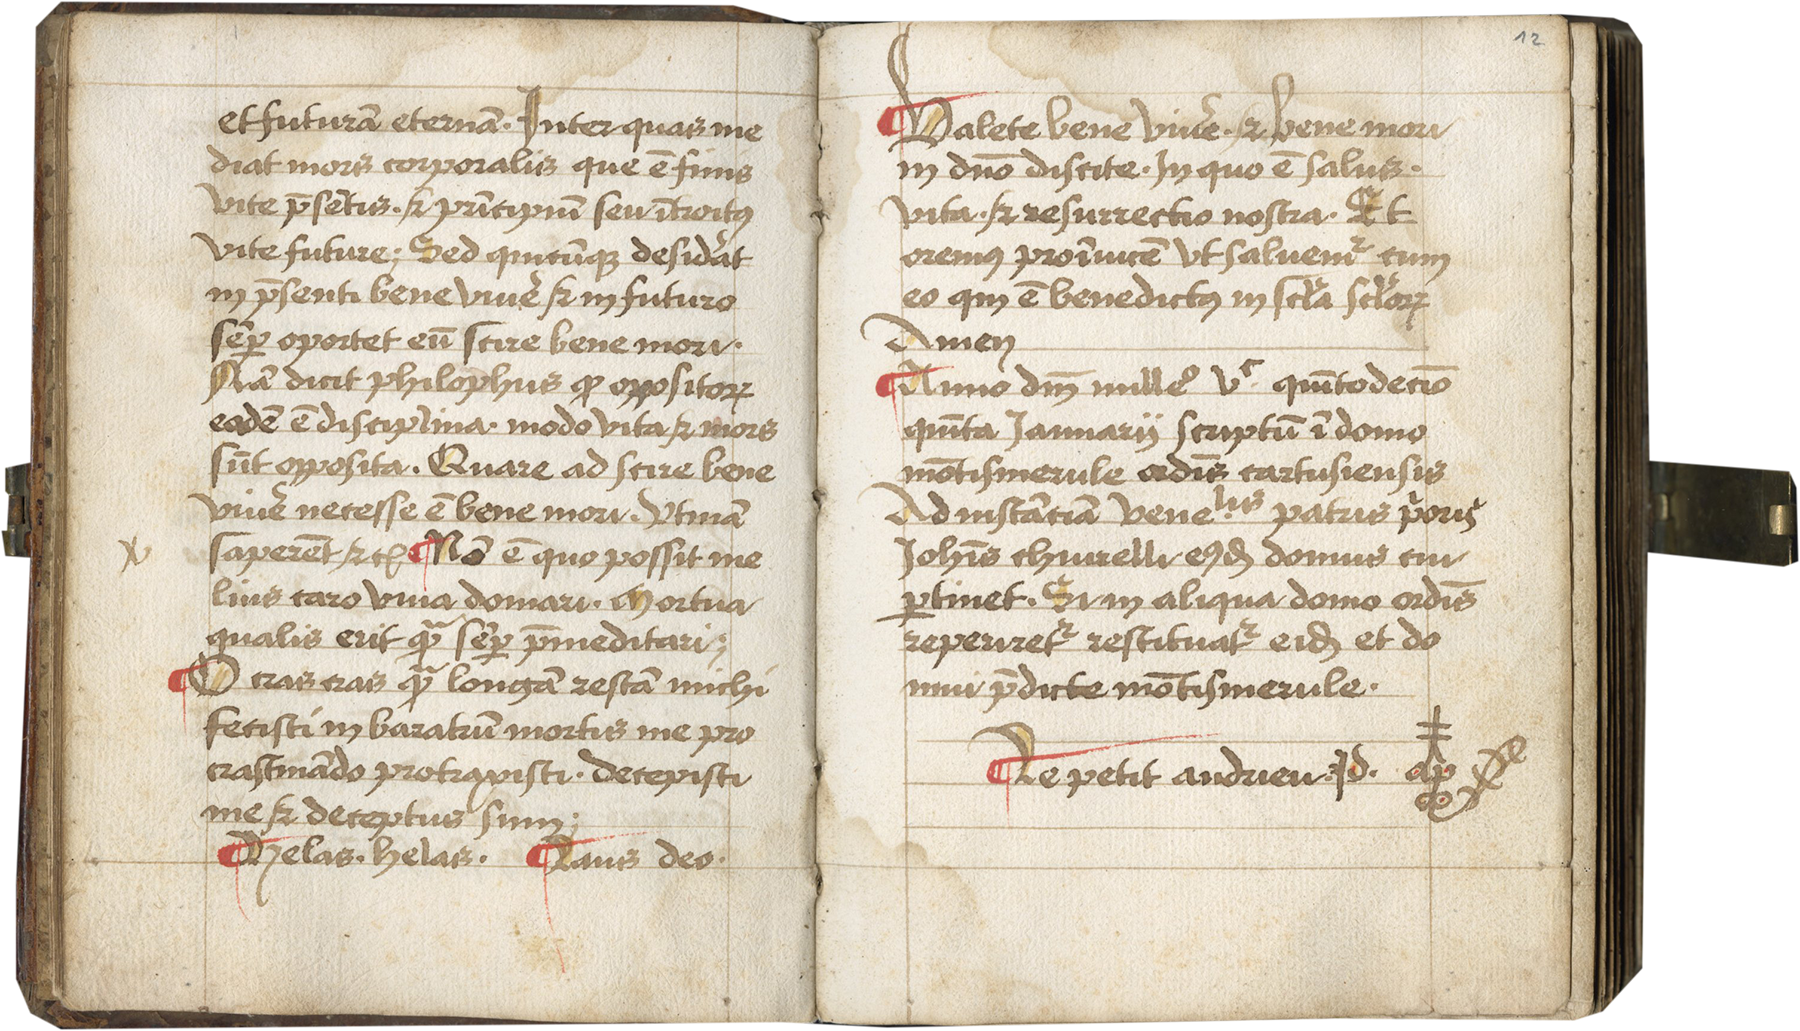 et futurā eternā. Inter quas me
diat mors corporalis que ē finis
vite p̄sētis. & prīcipiū seu ītroitꝰ
vite future; Sed quicūqꝫ desiderat
in p̄senti bene viuē & in futuro
sēp oportet eū scire bene mori.
Nā dicit philophus ꝙ oppositoꝝ
eadē ē disciplina. modo vita & mors
sūt opposita. Quare ad scire bene
viuē necesse ē bene mori. Vtinā
saperēt &c Nō ē quo possit me
lius caro viua domari. Mortua
qualis erit sēp p̄meditari;
O cras cras longā restā michi
fecisti in baratrū mortis me pro
crastinādo protraxisti. decepisti
me & deceptus sum;
Helas. helas. Laus deo.
12
Valete bene viuē. & bene mori
in dn̄o discite. In quo ē salus.
vita. & resurrectio nostra. Et
oremꝰ pro īuicē vt saluemr cum
eo qui ē benedictꝰ in scl̄a scl̄oꝝ
Amen
Anno dn̄i mille° Vc quītodecīo
quīta Januarij scriptū ī domo
mōtismerule ordīs cartusiensis
Ad instātiā venelis patris p̄oris
Johīs thiurelli eꝰd domus cui
ꝑtinet. Si in aliqua domo ordīs
reperiretr restituatr eid et do
mui p̄dicte mōtismerule.
Le petit andrieu. Jd.